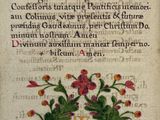 Confessoris tui atque Pontificis memori
am Colimus, vitæ præsentis & futuræ
gaudiis Gaudeamus, per Christum Do
minum nostrum. Amen
Divinum auxilium maneat semper no
biscum. Amen.